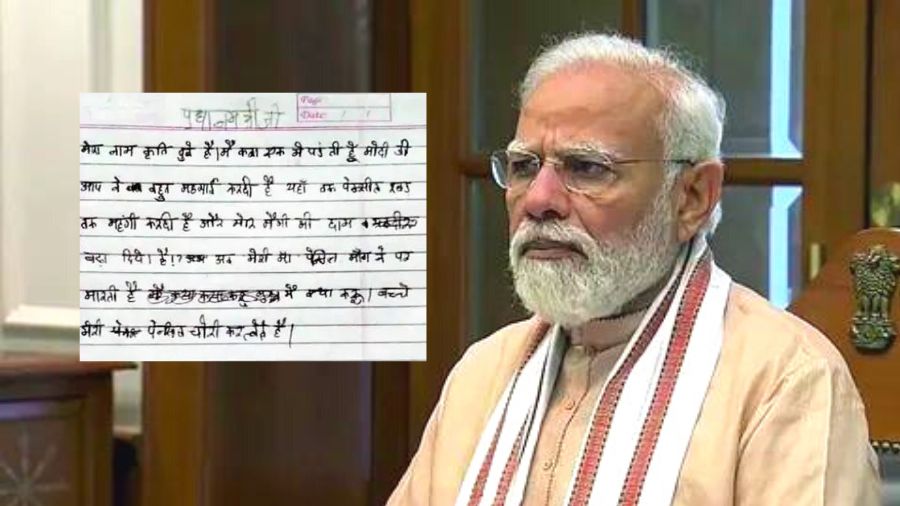 Page:
Date: / /
प्रधानमंत्री जी
मेरा नाम कृति दुबे है। मैं कक्षा एक में पढ़ती हूँ मोदी जी
आप ने बहुत महगाई करदी है यहाँ तक पेन्सील रबड़
तक महंगी करदी है और मेरे मैगी की दाम
बढ़ा दिये। है!? अब मेरी मा पेंसिल माँग ने पर
मारती है मैं क्या करू। बच्चे
मेरी पेन्सिल चोरी कर लेते है।